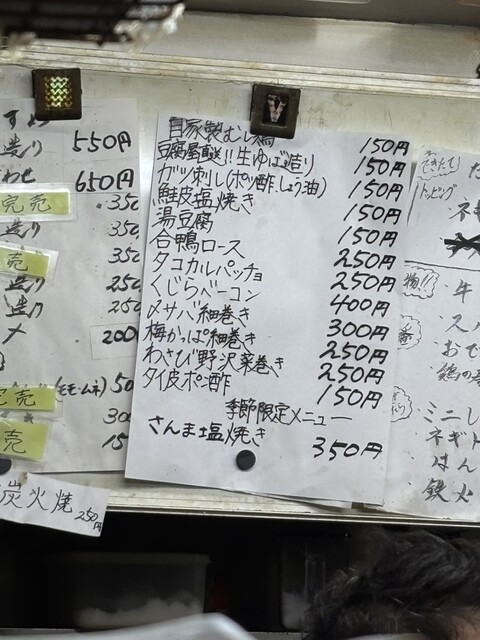 造り 550円
わせ 650円
完売 350
造り 350
売 350
造り 250
造り 250
200
完売 (モモ・ムネ) 50
売
炭火焼 250円
自家製むし鶏 150円
豆腐屋直送!!生ゆば造り 150円
ガツ刺し(ポン酢.しょう油) 150円
鮭皮塩焼き 150円
湯豆腐 150円
合鴨ロース 250円
タコカルパッチョ 250円
くじらベーコン 400円
〆サバ細巻き 300円
梅かっぱ細巻き 250円
わさび野沢菜巻き 250円
タイ皮ポン酢 150円
季節限定メニュー
さんま塩焼き 350円
トッピング
物!!
・牛
・ミニし
・ネギト
・はん
・鉄火